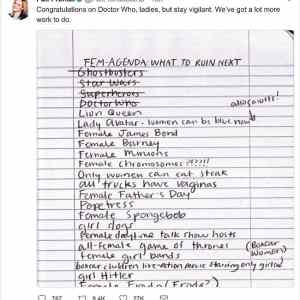 Congratulations on Doctor Who, ladies, but stay vigilant. We've got a lot more
work to do.
FEM-AGENDA: WHAT TO RUIN NEXT
Ghostbusters
Star Wars
Superheroes
Doctor Who
Lion Queen
Lady Avatar - women can be blue now
Female James Bond
Female Barney
Female Minions
Female Chromosomes
Only women can eat steak
all trucks have vaginas
Female Father's Day
Popetress
Female Spongebob
girl dogs
Female daytime talk show hosts
all-female game of thrones
(Boxcar
Women)
female girl bands
boxcar children live-action movie starring only girls
girl Hitler